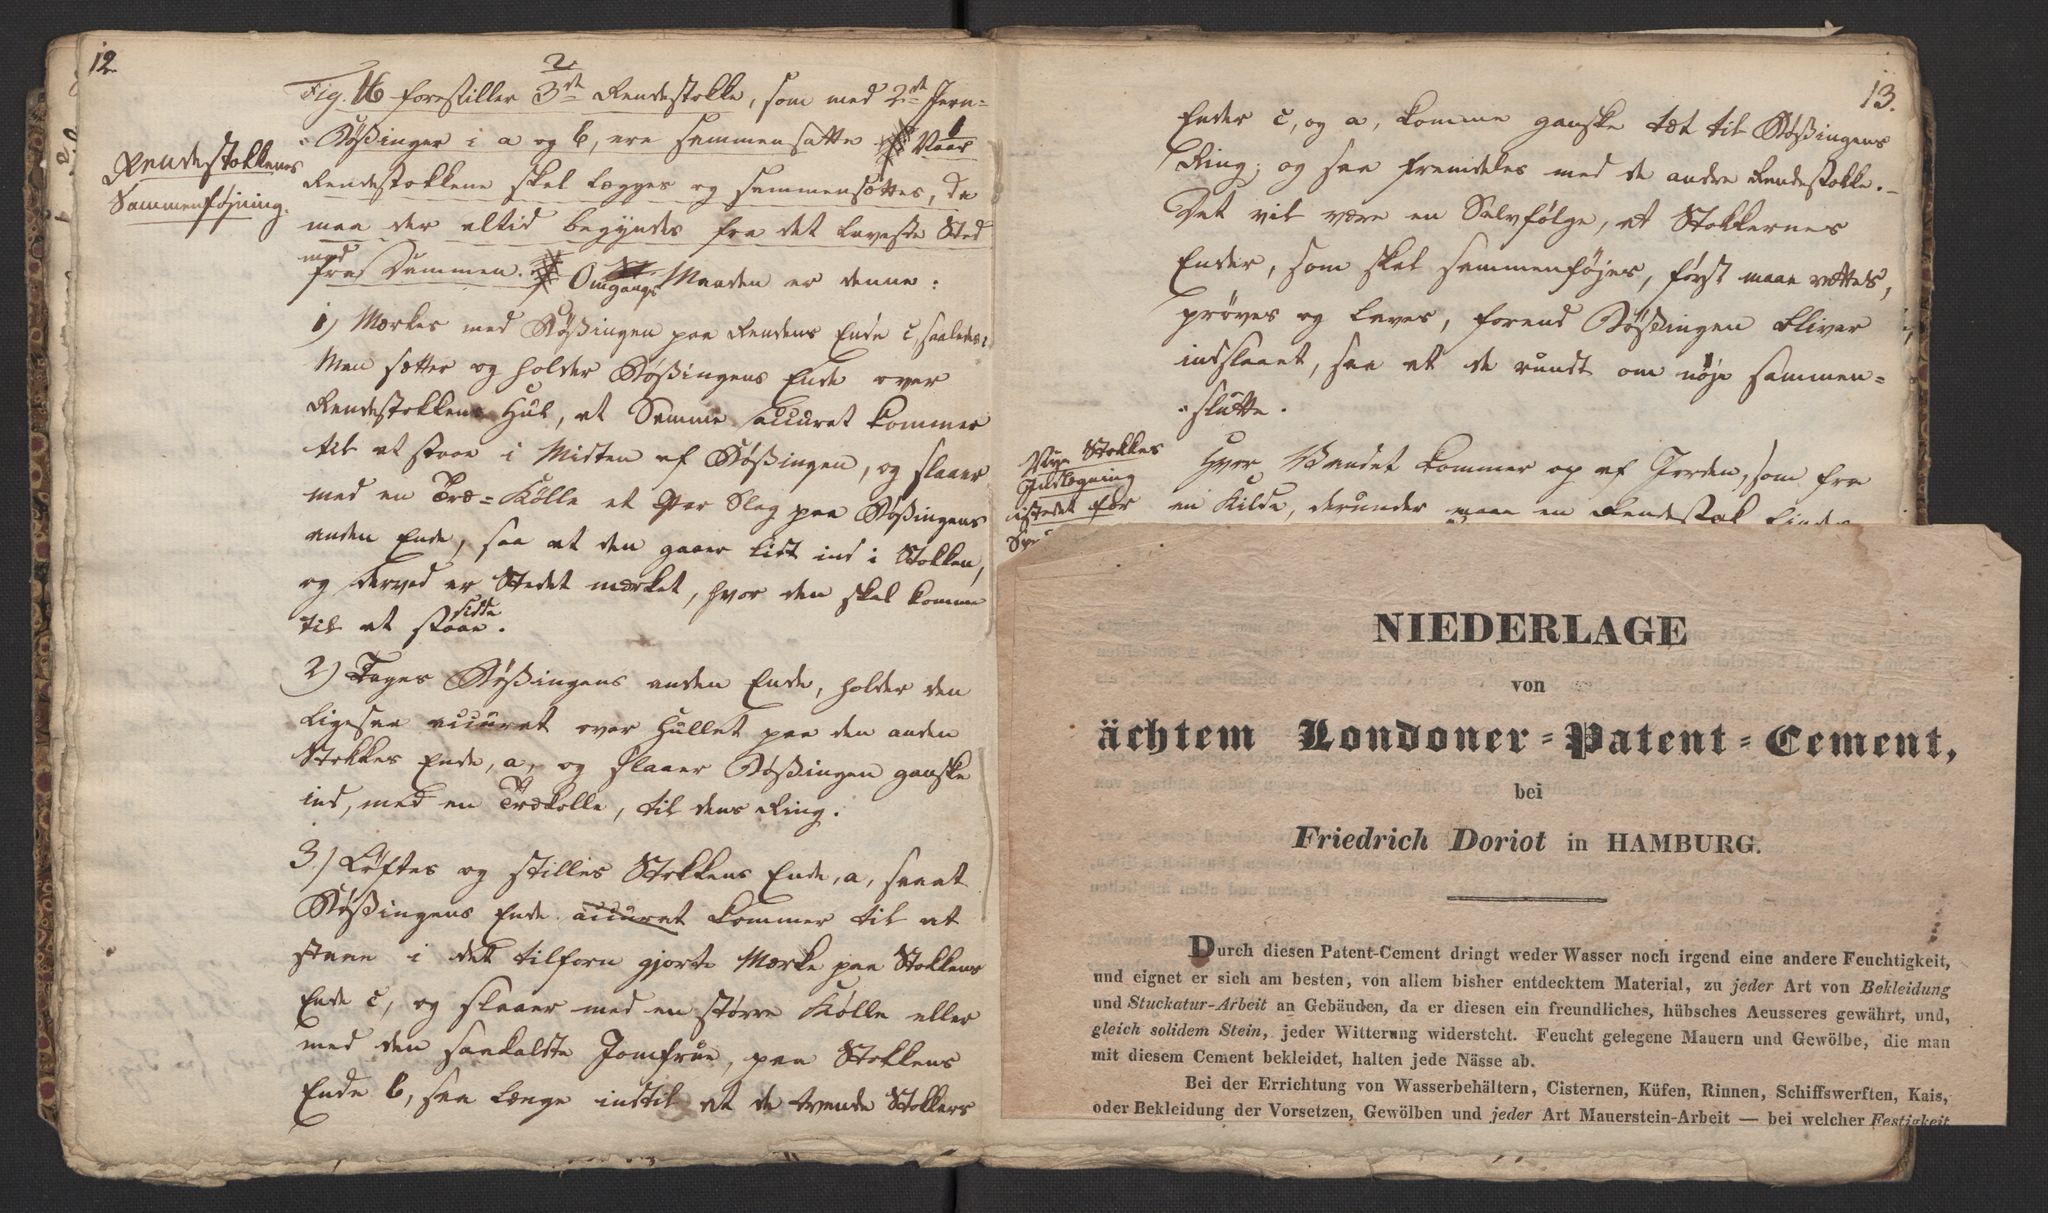 12
2
Fig. 16 forestiller 3de Rendestokke, som med 2de Jern=
=Bößinger i a og b, ere sammensatte. Naar
Rendestokkenes
Sammenføjning.
Rendestokkene skal lægges og sammensættes, da
maa der altid begyndes fra det laveste Sted
med
fra Dammen. Omgangs Maaden er denne:
1) Mærkes med Bößingen paa Rendens Ende c, saaledes:
Man sætter og holder Bößingens Ende over
Rendestokkens Hul, at Samme accurat kommer
til at staae i Midten af Bößingen, og slaaer
med en Træ=Kölle et Par Slag paa Bößingens
anden Ende, saa at den gaaer lidt ind i Stokken,
og derved er Stedet mærket, hvor den skal komme
sidde
til at staae.
2) Tages Bößingens anden Ende, holder den
ligesaa accurat over Hullet paa den anden
Stokkes Ende, a, og slaaer Bößingen ganske
ind, med en Trækolle, til dens Ring.
3) Løftes og stilles Stokkens Ende, a, saaat
Bößingens Ende accurat kommer til at
staae i det tilforn gjorte Mærke paa Stokkens
Ende c, og slaaer med en större Kölle eller
med den saakaldte Jomfrue, paa Stokkens
Ende b, saa længe indtil at de tvende Stokkers
13.
Ender c, og a, komme ganske tæt til Bößingens
Ring; og saa fremdeles med de andre Rendestokke.
Det vil være en Selvfölge, at Stokkernes
Ender, som skal sammenføjes, först maae rettes,
pröves og laves, forend Bößingen bliver
indslaaet, saa at de rundt om nöje sammen=
=slutte.
Nye Stokkes
Nedlægning
istedet for
Hvor Vandet kommer op af Jorden, som fra
en Kilde, derunder maae en Rendestok
NIEDERLAGE
von
ächtem Londoner=Patent=Cement,
bei
Friedrich Doriot in HAMBURG.
Durch diesen Patent-Cement dringt weder Wasser noch irgend eine andere Feuchtigkeit,
und eignet er sich am besten, von allem bisher entdecktem Material, zu jeder Art von Bekleidung
und Stuckatur-Arbeit an Gebäuden, da er diesen ein freundliches, hübsches Aeusseres gewährt, und,
gleich solidem Stein, jeder Witterung widersteht. Feucht gelegene Mauern und Gewölbe, die man
mit diesem Cement bekleidet, halten jede Nässe ab.
Bei der Errichtung von Wasserbehältern, Cisternen, Küfen, Rinnen, Schiffswerften, Kais,
oder Bekleidung der Vorsetzen, Gewölben und jeder Art Mauerstein-Arbeit — bei welcher Festigkeit